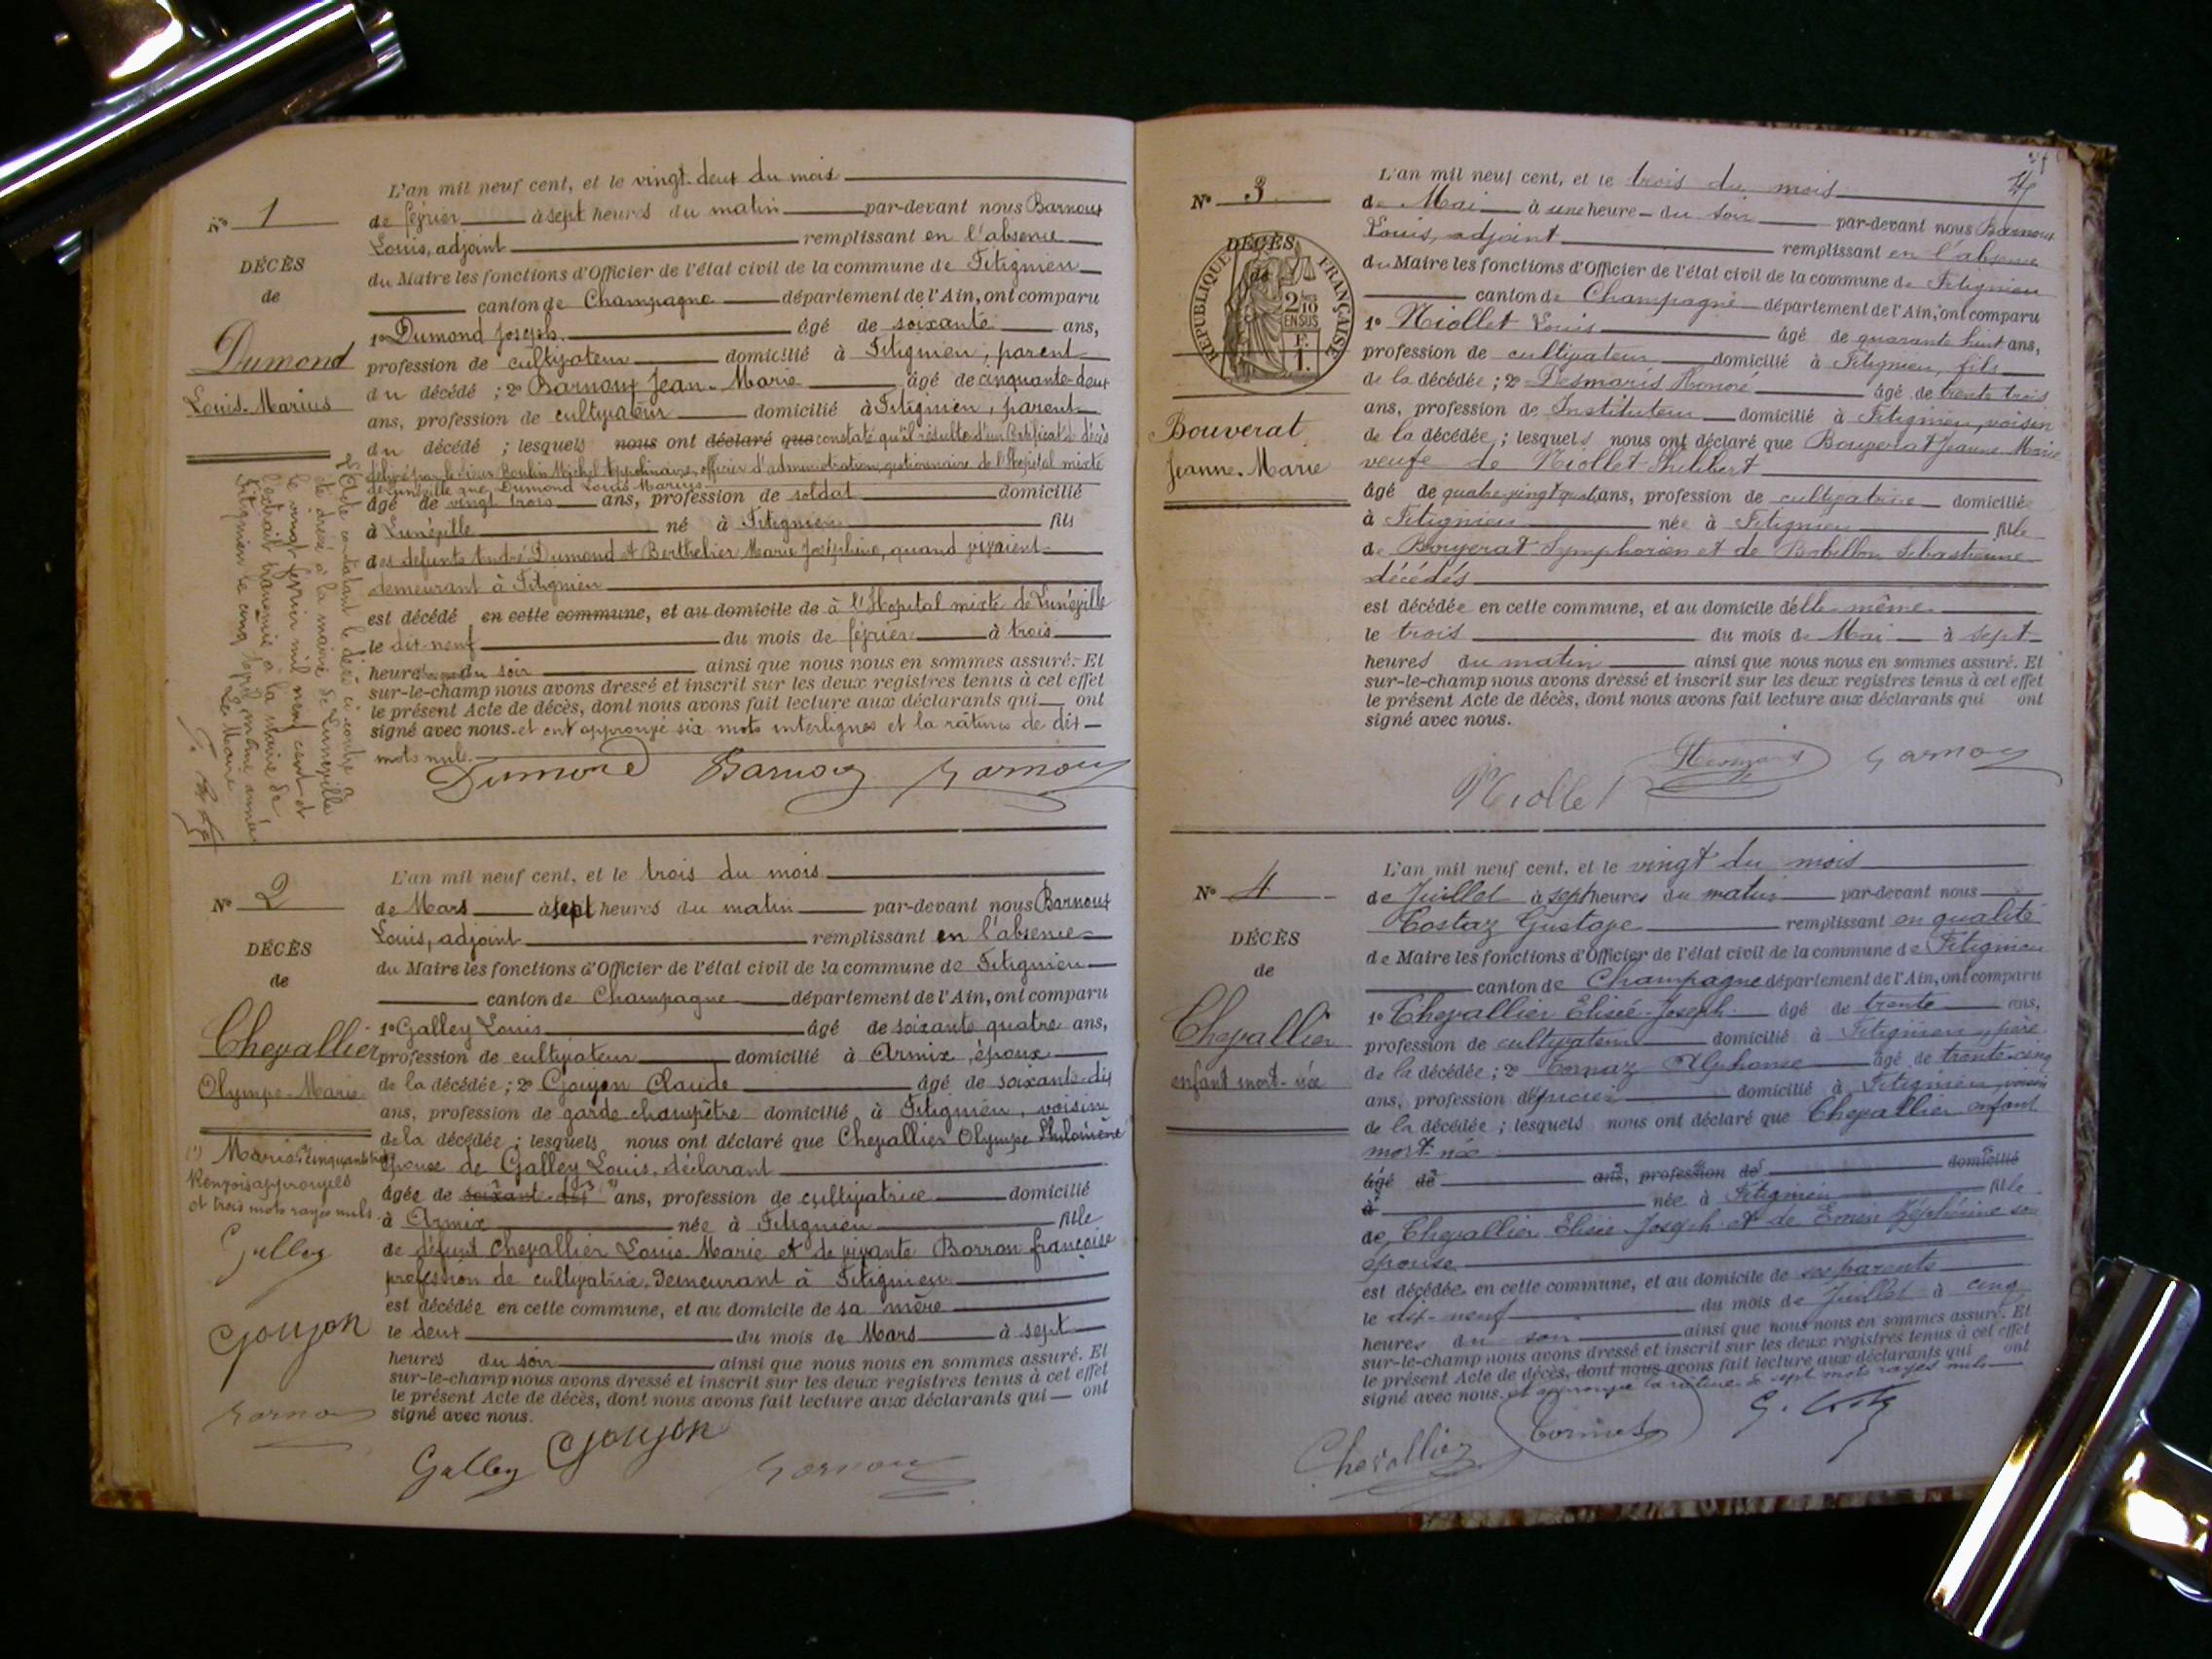 L'an mil neuf cent, et le vingt-deux du mois
N° 1
de février à sept heures du matin par-devant nous Barnoux
Louis, adjoint remplissant en l'absence
DÉCÈS
du Maire les fonctions d'Officier de l'état civil de la commune de Fitignieu
de
canton de Champagne département de l'Ain, ont comparu
1° Dumond Joseph âgé de soixante ans,
Dumond
profession de cultivateur domicilié à Fitignieu, parent
Louis-Marius
du décédé ; 2° Barnoux Jean-Marie âgé de cinquante-deux
ans, profession de cultivateur domicilié à Fitignieu, parent
du décédé ; lesquels nous ont déclaré que constaté qu'il résulte d'un certificat de décès
délivré par le sieur Boulin Michel Appolinaire, officier d'administration, gestionnaire de l'Hopital mixte
de Lunéville que Dumond Louis Marius
âgé de vingt trois ans, profession de soldat domicilié
à Lunéville né à Fitignieu fils
des défunts André Dumond et Berthelier Marie Joséphine, quand vivaient
demeurant à Fitignieu
est décédé en cette commune, et au domicile de à l'Hopital mixte de Lunéville
le dix-neuf du mois de février à trois
heures du soir ainsi que nous nous en sommes assuré. Et
sur-le-champ nous avons dressé et inscrit sur les deux registres tenus à cet effet
le présent Acte de décès, dont nous avons fait lecture aux déclarants qui ont
signé avec nous. et ont approuvé six mots interlignes et la rature de dix
mots nuls.
Dumond Barnoux Barnoux
L'Acte constatant le décès ci-contre a
été dressé à la mairie de Lunéville
le vingt février mil neuf cent et
l'extrait transmis à la mairie de
Fitignieu le cinq même année
Le Maire
L'an mil neuf cent, et le trois du mois
N° 2
de Mars à sept heures du matin par-devant nous Barnoux
Louis, adjoint remplissant en l'absence
DÉCÈS
du Maire les fonctions d'Officier de l'état civil de la commune de Fitignieu
de
canton de Champagne département de l'Ain, ont comparu
1° Galley Louis âgé de soixante quatre ans,
Chevallier
profession de cultivateur domicilié à Armix, époux
Olympe-Marie
de la décédée ; 2° Goujon Claude âgé de soixante-dix
ans, profession de garde champêtre domicilié à Fitignieu, voisin
de la décédée ; lesquels nous ont déclaré que Chevallier Olympe Philomène
(1) Marie
Renvois approuvés
et trois mots rayés nuls
épouse de Galley Louis, déclarant
âgée de soixant-dix (1) ans, profession de cultivatrice domicilié
à Armix née à Fitignieu fille
Galley
de défunt Chevallier Louis Marie et de vivante Borron françoise
profession de cultivatrice. Demeurant à Fitignieu
est décédée en cette commune, et au domicile de sa mère
Goujon
le deux du mois de Mars à sept
heures du soir ainsi que nous nous en sommes assuré. Et
sur-le-champ nous avons dressé et inscrit sur les deux registres tenus à cet effet
le présent Acte de décès, dont nous avons fait lecture aux déclarants qui ont
Barnoux
signé avec nous.
Galley Goujon Barnoux
L'an mil neuf cent, et le trois du mois
N° 3
de Mai à une heure du soir par-devant nous Barnoux
Louis, adjoint remplissant en l'absence
DÉCÈS
de
RÉPUBLIQUE FRANÇAISE
2/10 EN SUS
F. 1.
du Maire les fonctions d'Officier de l'état civil de la commune de Fitignieu
canton de Champagne département de l'Ain, ont comparu
1° Niollet Louis âgé de quarante huit ans,
profession de cultivateur domicilié à Fitignieu, fils
de la décédée ; 2° Desmaris Honoré âgé de trente trois
Bouverat
Jeanne-Marie
ans, profession de Instituteur domicilié à Fitignieu, voisin
de la décédée ; lesquels nous ont déclaré que Bouverat Jeanne Marie
veuve de Niollet Philibert
âgé de quatre-vingt ans, profession de cultivatrice domicilié
à Fitignieu née à Fitignieu fille
de Bouverat Symphorien et de Barbillon Sébastienne
décédés
est décédée en cette commune, et au domicile d'elle-même
le trois du mois de Mai à sept
heures du matin ainsi que nous nous en sommes assuré. Et
sur-le-champ nous avons dressé et inscrit sur les deux registres tenus à cet effet
le présent Acte de décès, dont nous avons fait lecture aux déclarants qui ont
signé avec nous.
Niollet Barnoux
L'an mil neuf cent, et le vingt du mois
N° 4
de Juillet à sept heures du matin par-devant nous
Costaz Gustave remplissant en qualité
DÉCÈS
de Maire les fonctions d'Officier de l'état civil de la commune de Fitignieu
de
canton de Champagne département de l'Ain, ont comparu
1° Chevallier Elisée-Joseph âgé de trente ans,
Chevallier
profession de cultivateur domicilié à Fitignieu, père
enfant mort-née
de la décédée ; 2° Cornaz Alphonse âgé de trente-cinq
ans, profession d'épicier domicilié à Fitignieu, voisin
de la décédée ; lesquels nous ont déclaré que Chevallier enfant
mort-née
âgé de ans, profession de domicilié
à née à Fitignieu fille
de Chevallier Elisée-Joseph et de Emen Zéphirine son
épouse
est décédée en cette commune, et au domicile de ses parents
le dix-neuf du mois de Juillet à cinq
heures du soir ainsi que nous nous en sommes assuré. Et
sur-le-champ nous avons dressé et inscrit sur les deux registres tenus à cet effet
le présent Acte de décès, dont nous avons fait lecture aux déclarants qui ont
signé avec nous. et approuvé la rature de sept mots rayés nuls
Chevallier